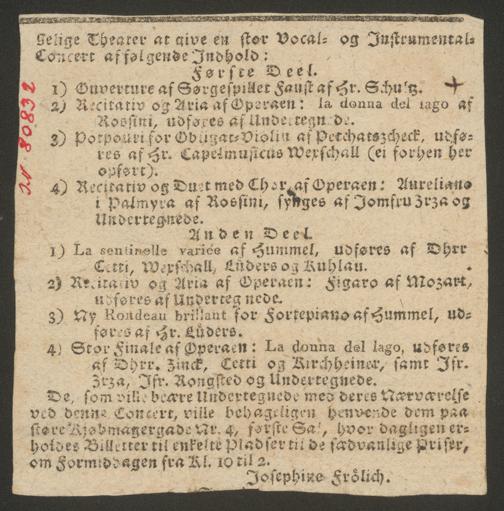 gelige Theater at give en stor Vocal- og Instrumental-
Concert af følgende Indhold:
Første Deel.
1) Ouverture af Sørgespillet Faust af Hr. Schultz.
2) Recitativ og Aria af Operaen: la donna del lago af
Rossini, udføres af Undertegnede.
3) Potpouri for Obligat-Violin af Petchatszcheck, udfø-
res af Hr. Capelmusicus Wexschall (ei forhen her
opført).
4) Recitativ og Duet med Chor af Operaen: Aureliano
i Palmyra af Rossini, synges af Jomfru Zrza og
Undertegnede.
Anden Deel.
1) La sentinelle variée af Hummel, udføres af Dhrr
Cetti, Wexschall, Lüders og Kuhlau.
2) Recitativ og Aria af Operaen: Figaro af Mozart,
udføres af Undertegnede.
3) Ny Rondeau brillant for Fortepiano af Hummel, ud-
føres af Hr. Lüders.
4) Stor Finale af Operaen: La donna del lago, udføres
af Dhrr. Zinck, Cetti og Kirchheiner, samt Jfr.
Zrza, Jfr. Rongsted og Undertegnede.
De, som ville beære Undertegnede med deres Nærværelse
ved denne Concert, ville behageligen henvende dem paa
støre Kjøbmagergade Nr. 4, første Sal, hvor dagligen er-
holdes Billetter til enkelte Pladser til de sædvanlige Priser,
om Formiddagen fra Kl. 10 til 2.
Josephine Frölich.
80832